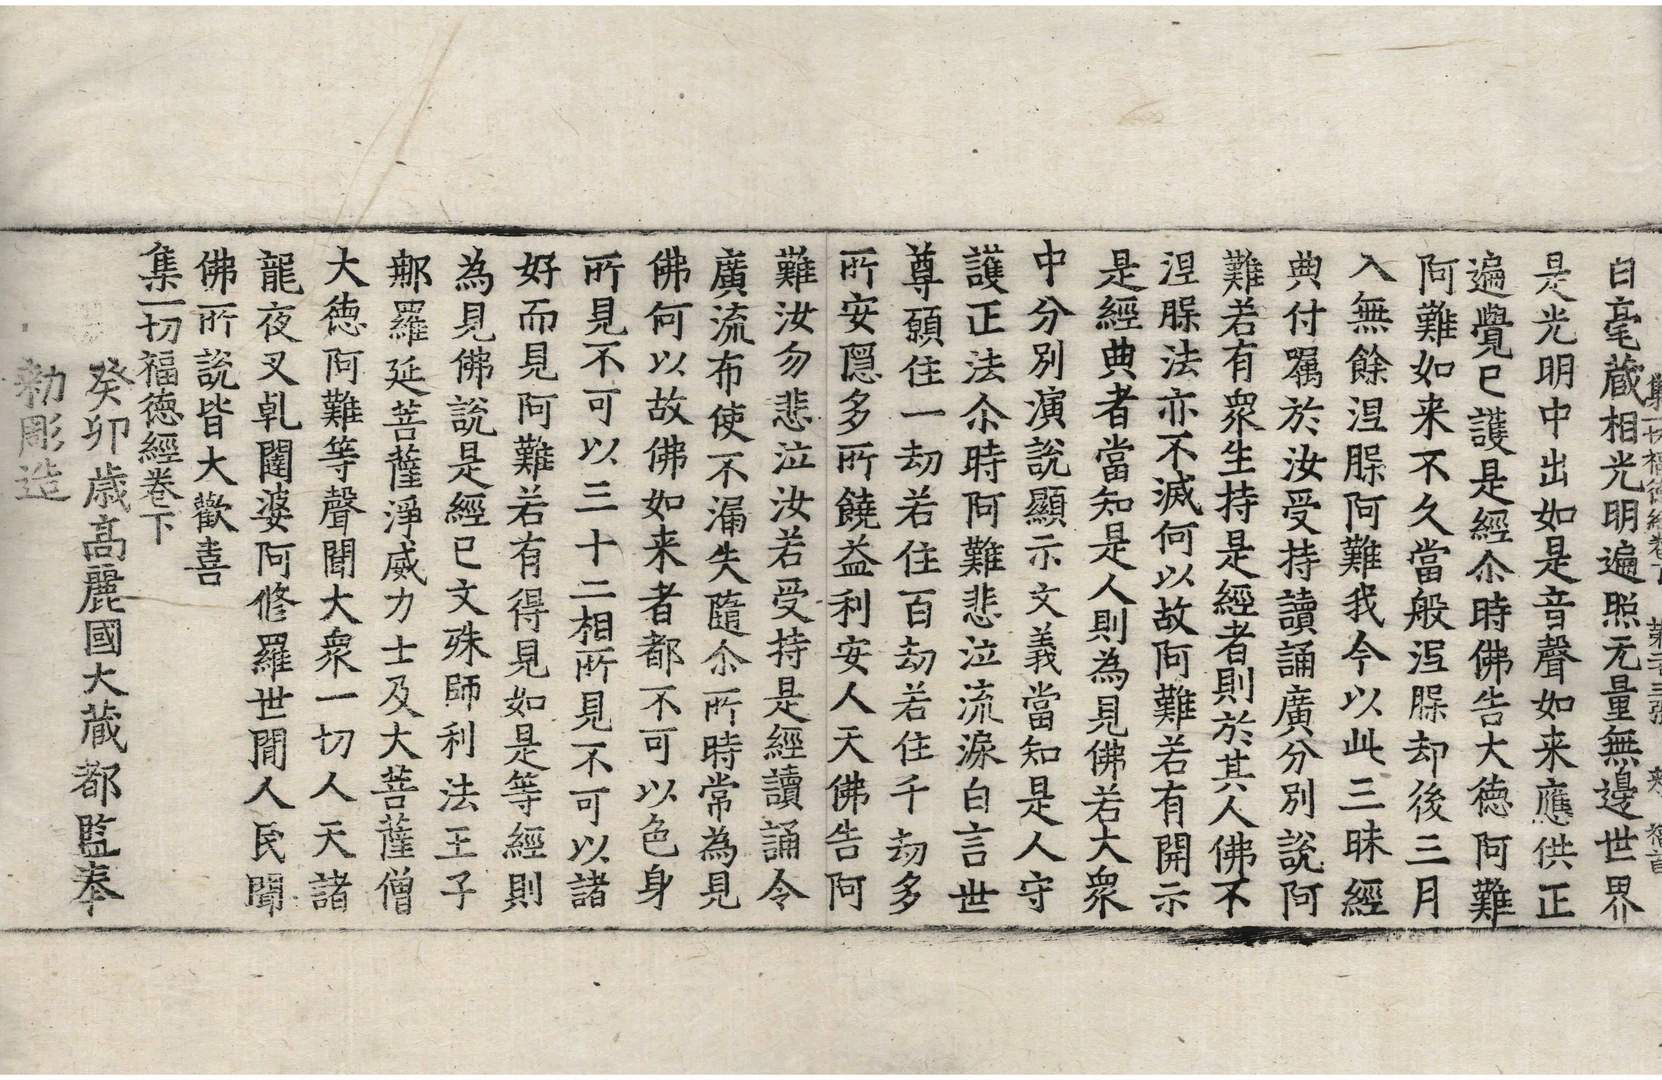 集一切福德經卷下
白毫蔵相光明遍照无量無邊世界
是光明中出如是音聲如来應供正
遍覺已護是經尒時佛告大德阿難
阿難如来不久當般涅腂却後三月
入無餘涅腂阿難我今以此三昧經
典付囑於汝受持讀誦廣分別說阿
難若有衆生持是經者則於其人佛不
涅腂法亦不滅何以故阿難若有開示
是經典者當知是人則為見佛若大衆
中分別演說顯示文義當知是人守
護正法尒時阿難悲泣流淚白言世
尊願住一劫若住百劫若住千劫多
所安隠多所饒益利安人天佛告阿
難汝勿悲泣汝若受持是經讀誦令
廣流布使不漏失隨尒所時常為見
佛何以故佛如来者都不可以色身
所見不可以三十二相所見不可以諸
好而見阿難若有得見如是等經則
為見佛說是經已文殊師利法王子
郍羅延菩薩淨威力士及大菩薩僧
大德阿難等聲聞大衆一切人天諸
龍夜叉乹闥婆阿修羅世閒人民聞
佛所說皆大歡喜
集一切福德經卷下
癸卯歳高麗國大蔵都監奉
勑彫造